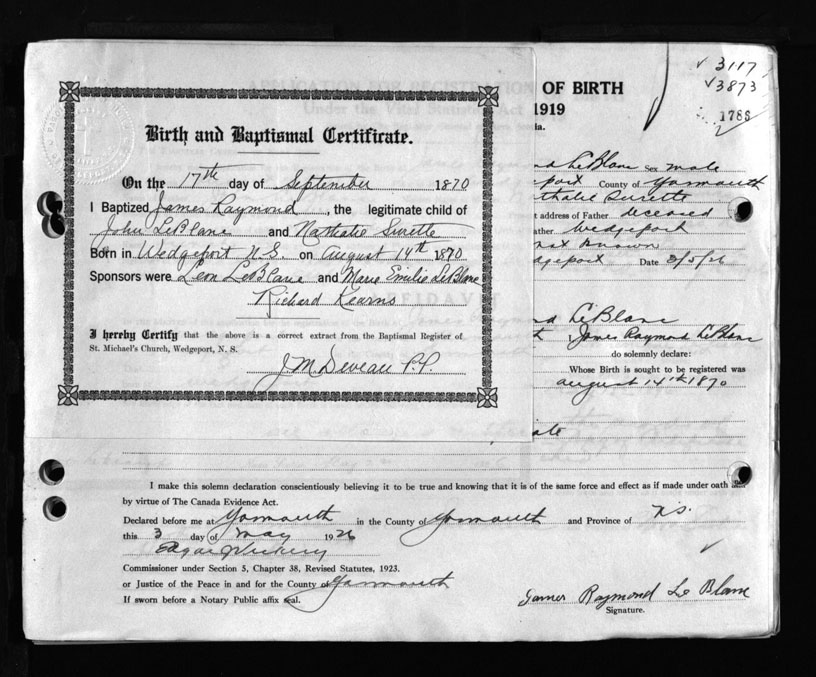 Birth and Baptismal Certificate.
On the 17th day of September 1870
I Baptized James Raymond, the legitimate child of
John LeBlanc and Nathalie Surette
Born in Wedgeport N.S. on August 14th 1870
Sponsors were Leon LeBlanc and Marie Emilie LeBlanc
Richard Kearns
I hereby Certify that the above is a correct extract from the Baptismal Register of
St. Michael's Church, Wedgeport, N. S.
J M Deveau P.P.
3117
3873
1788
OF BIRTH
1919
LeBlanc Sex male
County of Yarmouth
Nathalie Surette
address of Father deceased
Wedgeport
Brown
Date 3/5/26
LeBlanc
James Raymond LeBlanc
do solemnly declare:
Whose Birth is sought to be registered was
August 14th 1870
I make this solemn declaration conscientiously believing it to be true and knowing that it is of the same force and effect as if made under oath and
by virtue of The Canada Evidence Act.
Declared before me at Yarmouth in the County of Yarmouth and Province of N.S.
this 3 day of May 1926
Edgar Vickery
Commissioner under Section 5, Chapter 38, Revised Statutes, 1923.
or Justice of the Peace in and for the County of Yarmouth
If sworn before a Notary Public affix seal.
James Raymond Le Blanc
Signature.